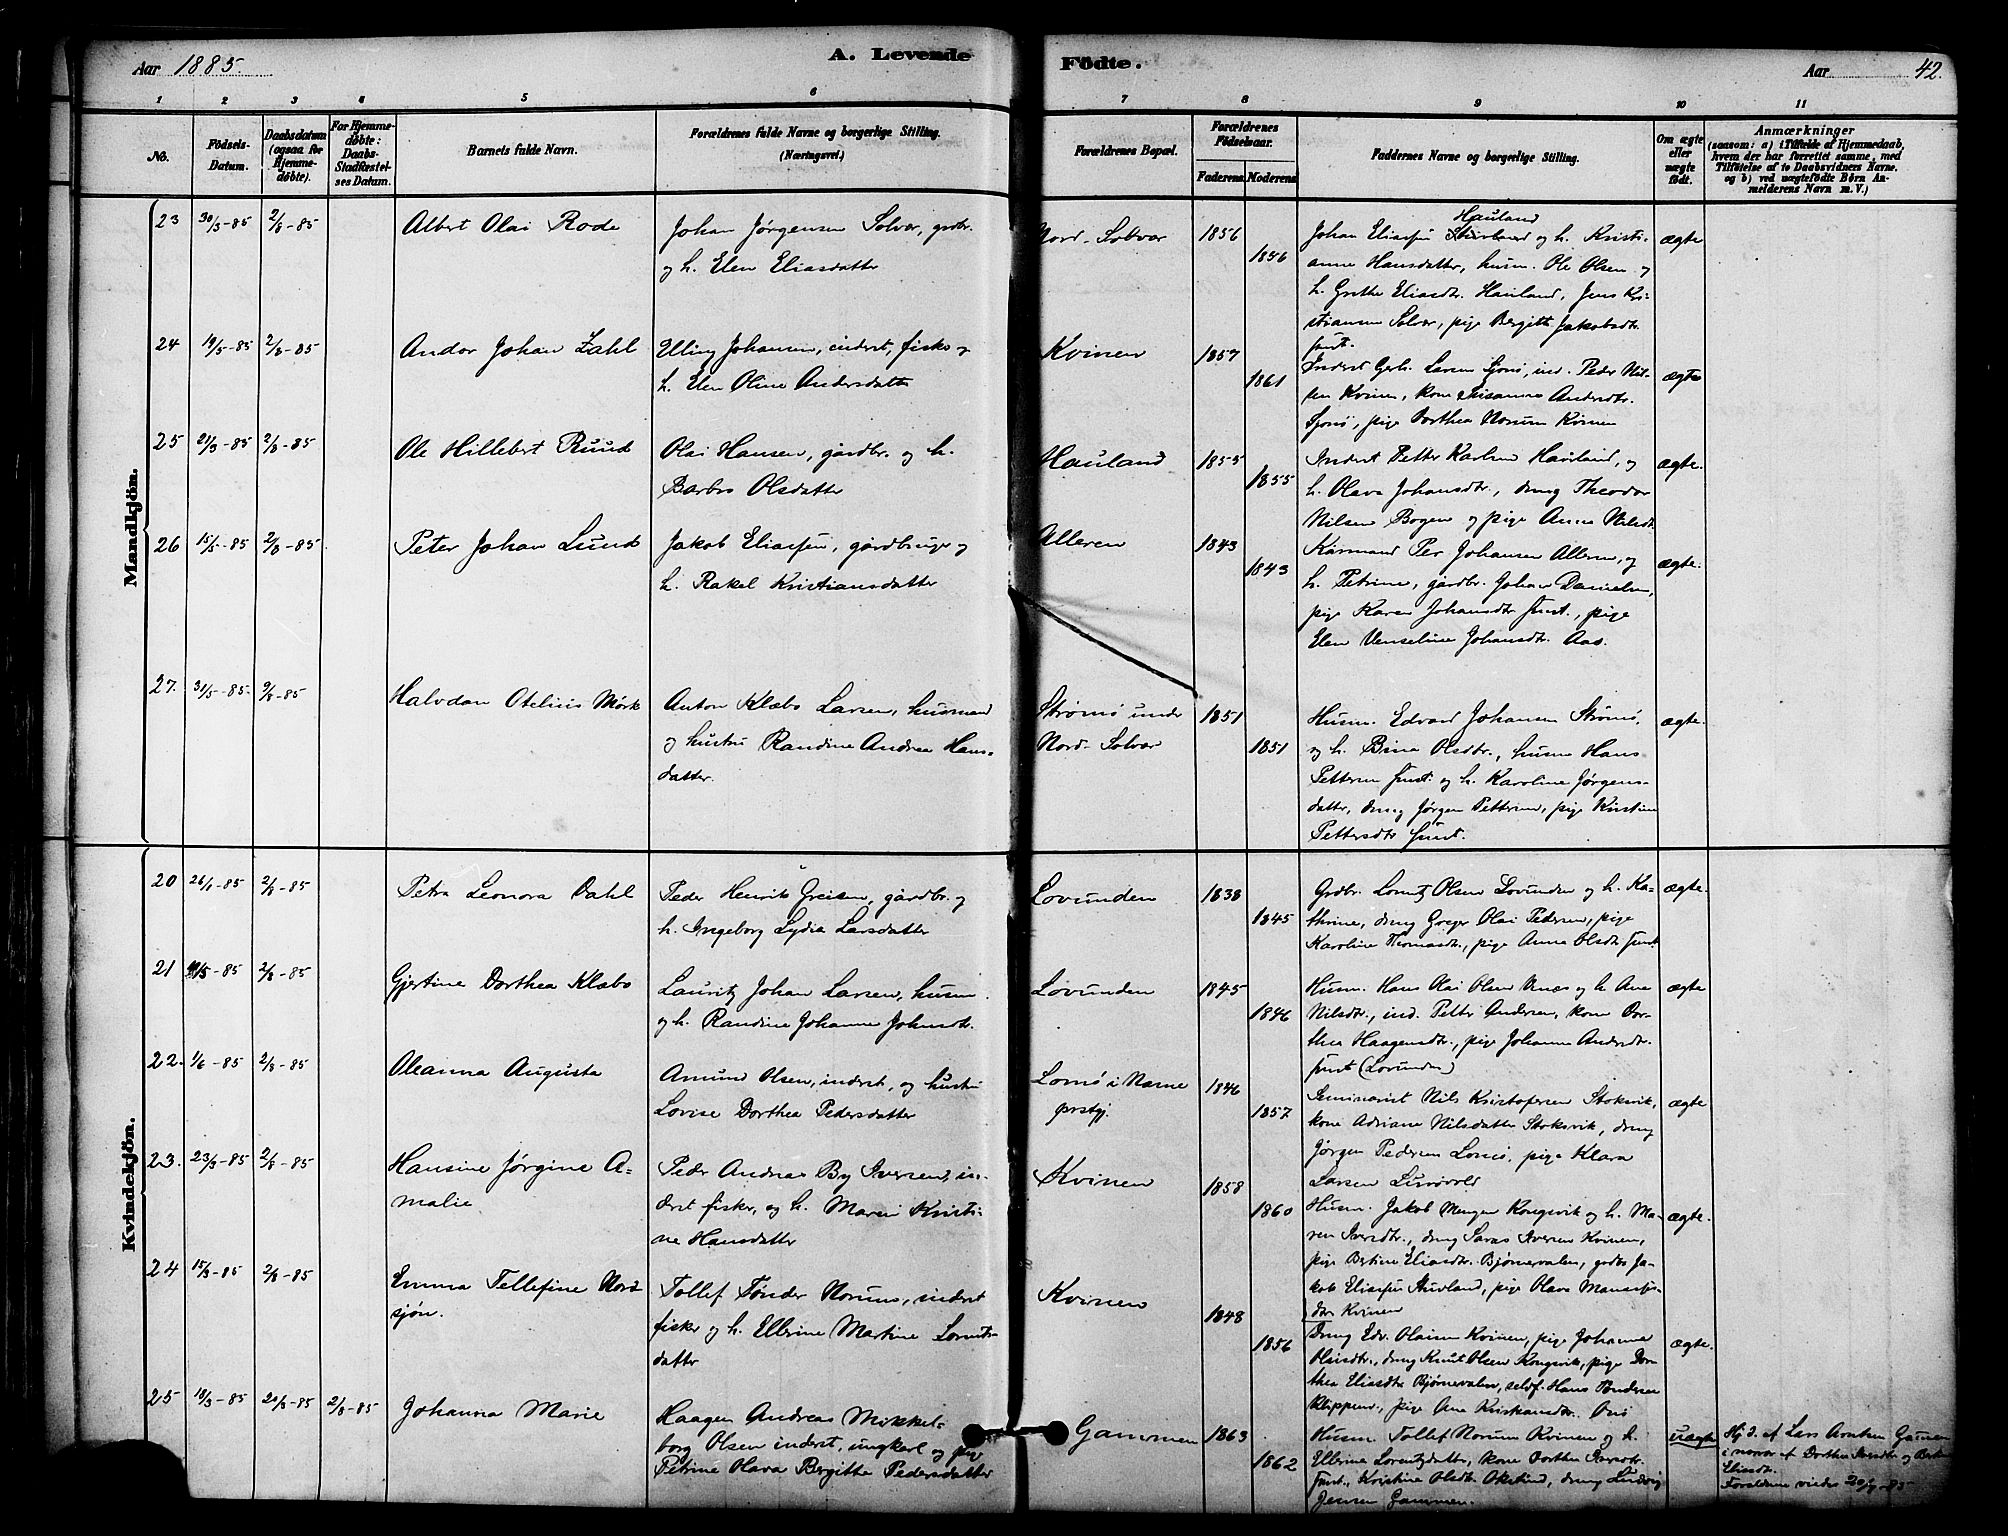 Aar 1885.
A. Levende
Födte.
Aar 42.
1 2 3 4 5 6 7 8 9 10 11
No.
Födsels-
Datum.
Daabsdatum
(ogsaa for
Hjemme-
døbte).
For Hjemme-
døbte:
Daabs-
Stadfæstel-
ses Datum.
Barnets fulde Navn.
Forældrenes fulde Navne og borgerlige Stilling.
(Næringsvei.)
Forældrenes Bopæl.
Forældrenes
Födselsaar.
Faderens
Moderens
Faddernes Navne og borgerlige Stilling.
Om ægte
eller
uægte
født.
Anmærkninger
(saasom: a) i Tilfælde af Hjemmedaab,
hvem der har forrettet samme, med
Tilföielse af to Daabsvidners Navne,
og b) ved uægtefödte Börn An-
melderens Navn m. V.)
Mandkjön.
23 30/3-85 2/8-85 Albert Olai Rode
Johan Jørgensen Solvær, grdbr.
og h. Elen Eliasdatter
Nord-Solvær 1856 1846
Hauland
Johan Eliassen og h. Kristi-
anne Hansdatter, husm. Ole Olsen og
h. Grethe Eliasdtr. Hauland, Jens Kri-
stiansen Solvær, pige Bergitte Jakobsdtr.
smst.
ægte
24 19/5-85 2/8-85 Andor Johan Zahl
Elling Johansen, inderst, fisker og
h. Elen Oline Andersdatter
Kvinen 1857 1861
Inderst Gerh. Larsen Sjonø, ind. Peder Nil-
sen Kvinen, kone Susanna Andersdtr.
Sjonø, pige Dorthea Norum Kvinen
ægte
25 21/3-85 2/8-85 Ole Hillebert Ruud
Olai Hansen, gårdbr. og h.
Barbro Olsdatter
Hauland 1855 1855
Inderst Petter Karlsen Hauland, og
h. Olava Johansdtr., dreng Theodor
Nilsen Bogen og pige Anne Nilsdtr.
ægte.
26 15/5-85 2/8-85 Peter Johan Lund
Jakob Eliassen, gårdbruger og
h. Rakel Kristiansdatter
Alleren 1843 1843
Kårmand Per Johansen Alleren, og
h. Petrine, gårdbr. Johan Danielsen,
pige Karen Johansdtr smst., pige
Elen Venseline Johansdtr. Aas.
ægte.
27. 31/5-85. 9/8-85 Halvdan Otelius Mørk
Anton Klæbo Larsen, husmand
og hustru Randine Andrea Hans-
datter.
Strømø under
Nord-Solvær 1851 1851
Husm. Edvard Johansen Strømø,
og h. Bina Olsdtr., husm Hans
Pettersen smst. og h. Karoline Jørgens-
datter, dreng Jørgen Pettersen, pige Kristine
Pettersdtr smst.
ægte.
Kvindekjön.
20 26/1-85 2/8-85 Petra Leonora Dahl
Peder Henrik Greisen, gårdbr. og
h. Ingeborg Lydia Larsdatter
Lovunden 1838 1845
Grdbr. Lorntz Olsen Lovunden og h. Ka-
thrine, dreng Greger Olai Pedersen, pige
Karoline Thomasdtr., pige Anna Olsdtr smst
ægte.
21 -85 2/8-85 Gjertine Dorthea Klæbo
Lauritz Johan Larsen, husm.
og h. Randine Johanne Johnsdtr.
Lovunden 1845 1846
Husm. Hans Olai Olsen Unæs og h. Ane
Nilsdtr., ind. Petter Andersen, kone Dor-
thea Haagensdtr., pige Johanna Andersdtr.
smst (Lovunden)
ægte
22. 1/6-85 2/8-85 Oleanna Augusta
Amund Olsen, inderst, og hustru
Lovise Dorthea Pedersdatter
Lomø i Næsne
prstgj. 1846 1857
Seminarist Nils Kristofersen Stoksvik,
kone Adriane Nilsdatter Stoksvik, dreng
Jørgen Pedersen Lomø, pige Klara
Larsen Lurøvold
ægte
23. 23/3-85 2/8-85 Hansine Jørgine A-
malie
Peder Andreas By Iversen, in-
derst fisker, og h. Maren Kristi-
ne Hansdatter
Kvinen 1858 1860
Husm. Jakob Kongsvik og h. Ma-
ren Iversdtr., dreng Saras Iversen Kvinen,
pige Bertine Eliasdtr. Bjørnevalen, grdbr Ja-
kob Eliassen Hauland, pige Olava
dtr. Kvinen
ægte.
24 15/3-85 2/8-85 Emma Tellefine Nord-
sjøn.
Tollef Tønder Norum, inderst
fisker og h. Ellerine Martine Lornts-
datter
Kvinen 1848 1856
Dreng Edv. Olaisen Kvinen, pige Johanna
Olaisdtr., dreng Knut Olsen Kongsvik, pige Dor-
thea Eliasdtr Bjørnevalen, selvf. Hans Andersen
Klippen, pige Ane Kristiansdtr. Onø
ægte.
25 10/3-85 20/3-85 2/8-85 Johanna Marie
Haagen Andreas Mikkel-
borg Olsen inderst, ungkarl og pige
Petrine Olava Bergitte Pedersdatter
Gammen 1863 1862
Husm. Tollef Norum Kvinen og h.
Ellerine Lorentzdatter, kone Dorthea Iversdtr.
smst., Kristine Olsdtr. Okstind, dreng Ludvig
Jensen Gammen.
uægte
Hj. d. af Lars Arntsen Gamen
i nærvær af Dorthea Iversdtr og
Eliasdtr.
Forældrene viedes 20/9-85